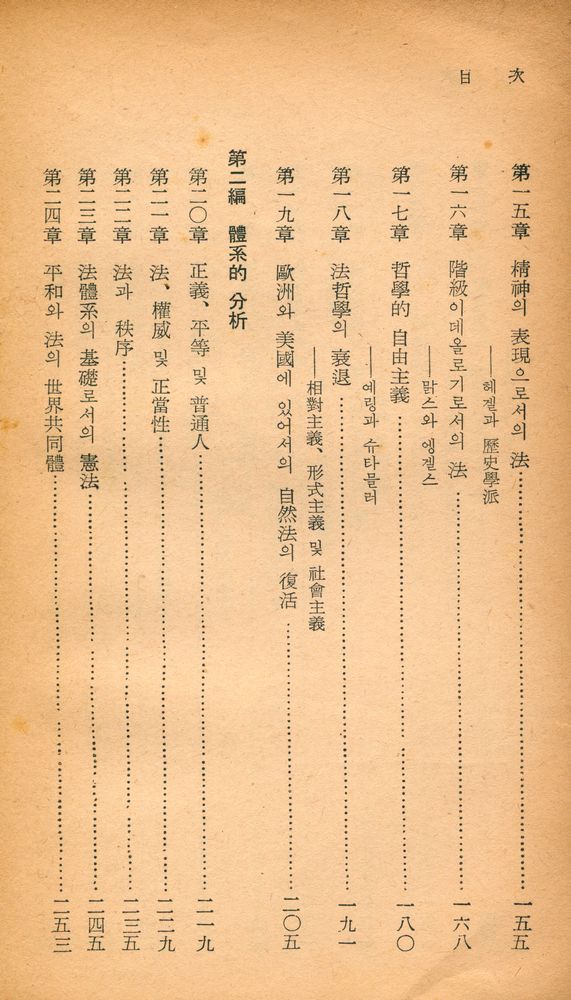 目 次
第一五章 精神의 表現으로서의 法 一五五
──헤겔과 歷史學派
第一六章 階級이데올로기로서의 法 一六八
──맑스와 엥겔스
第一七章 哲學的 自由主義 一八〇
──예링과 슈타믈러
第一八章 法哲學의 衰退 一九一
──相對主義、形式主義 및 社會主義
第一九章 歐洲와 美國에 있어서의 自然法의 復活 二〇五
第二編 體系的 分析
第二〇章 正義、平等 및 普通人 二一九
第二一章 法、權威 및 正當性 二二九
第二二章 法과 秩序 二三五
第二三章 法體系의 基礎로서의 憲法 二四五
第二四章 平和와 法의 世界共同體 二五三